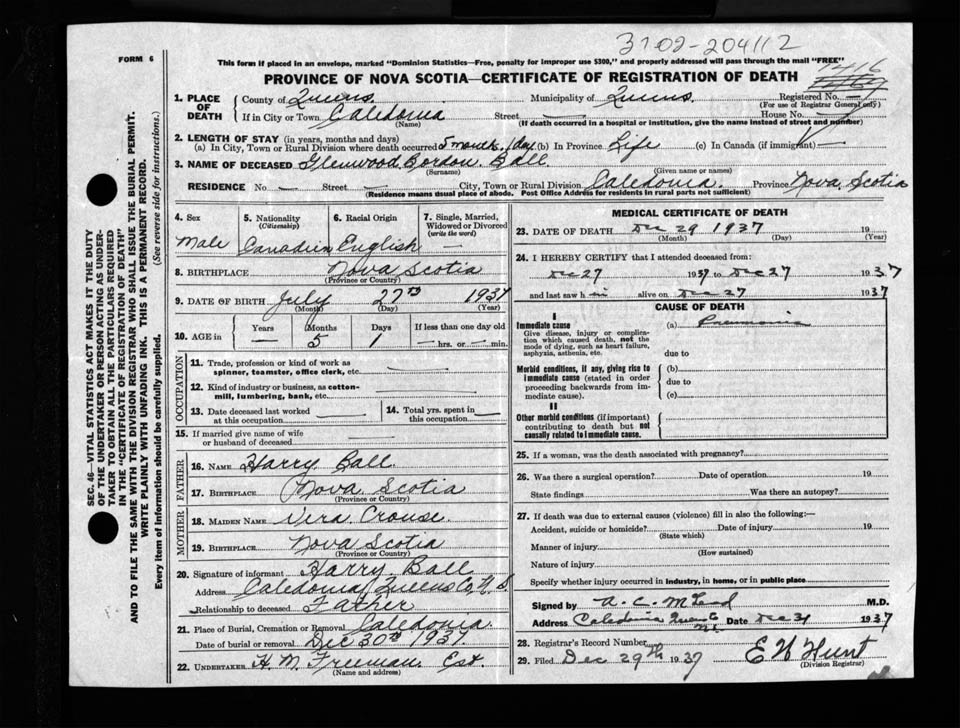 3702-204112
FORM 6
This form if placed in an envelope, marked "Dominion Statistics—Free, penalty for improper use $300," and properly addressed will pass through the mail "FREE"
PROVINCE OF NOVA SCOTIA—CERTIFICATE OF REGISTRATION OF DEATH
1416
1. PLACE OF DEATH
County of Queens. Municipality of Queens. Registered No.
(For use of Registrar General only)
If in City or Town Caledonia Street — House No. —
(Name) (If death occurred in a hospital or institution, give the name instead of street and number)
2. LENGTH OF STAY (in years, months and days)
(a) In City, Town or Rural Division where death occurred 5 months 1 day (b) In Province Life (c) In Canada (if immigrant) —
3. NAME OF DECEASED Glenwood Gordon Ball
(Surname) (Given name or names)
RESIDENCE No — Street — City, Town or Rural Division Caledonia. Province Nova Scotia
(Residence means usual place of abode. Post Office Address for residents in rural parts not sufficient)
4. Sex
Male
5. Nationality
(Citizenship)
Canadian
6. Racial Origin
English
7. Single, Married, Widowed or Divorced
(write the word)
—
8. BIRTHPLACE Nova Scotia
(Province or Country)
9. DATE OF BIRTH July 27th 1937
(Month) (Day) (Year)
10. AGE in
Years Months Days If less than one day old
— 5 1 — hrs. or — min.
OCCUPATION
11. Trade, profession or kind of work as spinner, teamster, office clerk, etc. —
12. Kind of industry or business, as cotton-mill, lumbering, bank, etc. —
13. Date deceased last worked at this occupation —
14. Total yrs. spent in this occupation —
15. If married give name of wife or husband of deceased —
FATHER
16. NAME Harry Ball
17. BIRTHPLACE Nova Scotia
(Province or Country)
MOTHER
18. MAIDEN NAME Vera Crouse.
19. BIRTHPLACE Nova Scotia
(Province or Country)
20. Signature of informant Harry Ball
Address Caledonia, Queens Co, N. S.
Relationship to deceased Father
21. Place of Burial, Cremation or Removal Caledonia.
Date of burial or removal Dec 30th 1937.
22. UNDERTAKER H. M. Freeman Est.
(Name and address)
MEDICAL CERTIFICATE OF DEATH
23. DATE OF DEATH Dec 29 1937 19
(Month) (Day) (Year)
24. I HEREBY CERTIFY that I attended deceased from:
Dec 27 1937 to Dec 27 1937
and last saw h im alive on Dec 27 1937
CAUSE OF DEATH
I
Immediate cause
Give disease, injury or complication which caused death, not the mode of dying, such as heart failure, asphyxia, asthenia, etc.
(a) Pneumonia
due to
Morbid conditions, if any, giving rise to immediate cause (stated in order proceeding backwards from immediate cause).
(b)
due to
(c)
II
Other morbid conditions (if important) contributing to death but not causally related to immediate cause.
25. If a woman, was the death associated with pregnancy?
26. Was there a surgical operation? Date of operation 19
State findings Was there an autopsy?
27. If death was due to external causes (violence) fill in also the following:—
Accident, suicide or homicide? Date of injury 19
(State which)
Manner of injury
(How sustained)
Nature of injury
Specify whether injury occurred in industry, in home, or in public place
Signed by A. C. McLeod M.D.
Address Caledonia Queens Co N.S. Date Dec 31 1937
28. Registrar's Record Number
29. Filed Dec 29th 1937 E H Hunt
(Division Registrar)
SEC. 46—VITAL STATISTICS ACT MAKES IT THE DUTY OF THE UNDERTAKER OR PERSON ACTING AS UNDERTAKER TO OBTAIN ALL THE PARTICULARS REQUIRED IN THE "CERTIFICATE OF REGISTRATION OF DEATH"
AND TO FILE THE SAME WITH THE DIVISION REGISTRAR WHO SHALL ISSUE THE BURIAL PERMIT.
WRITE PLAINLY WITH UNFADING INK. THIS IS A PERMANENT RECORD.
Every item of information should be carefully supplied. (See reverse side for instructions.)